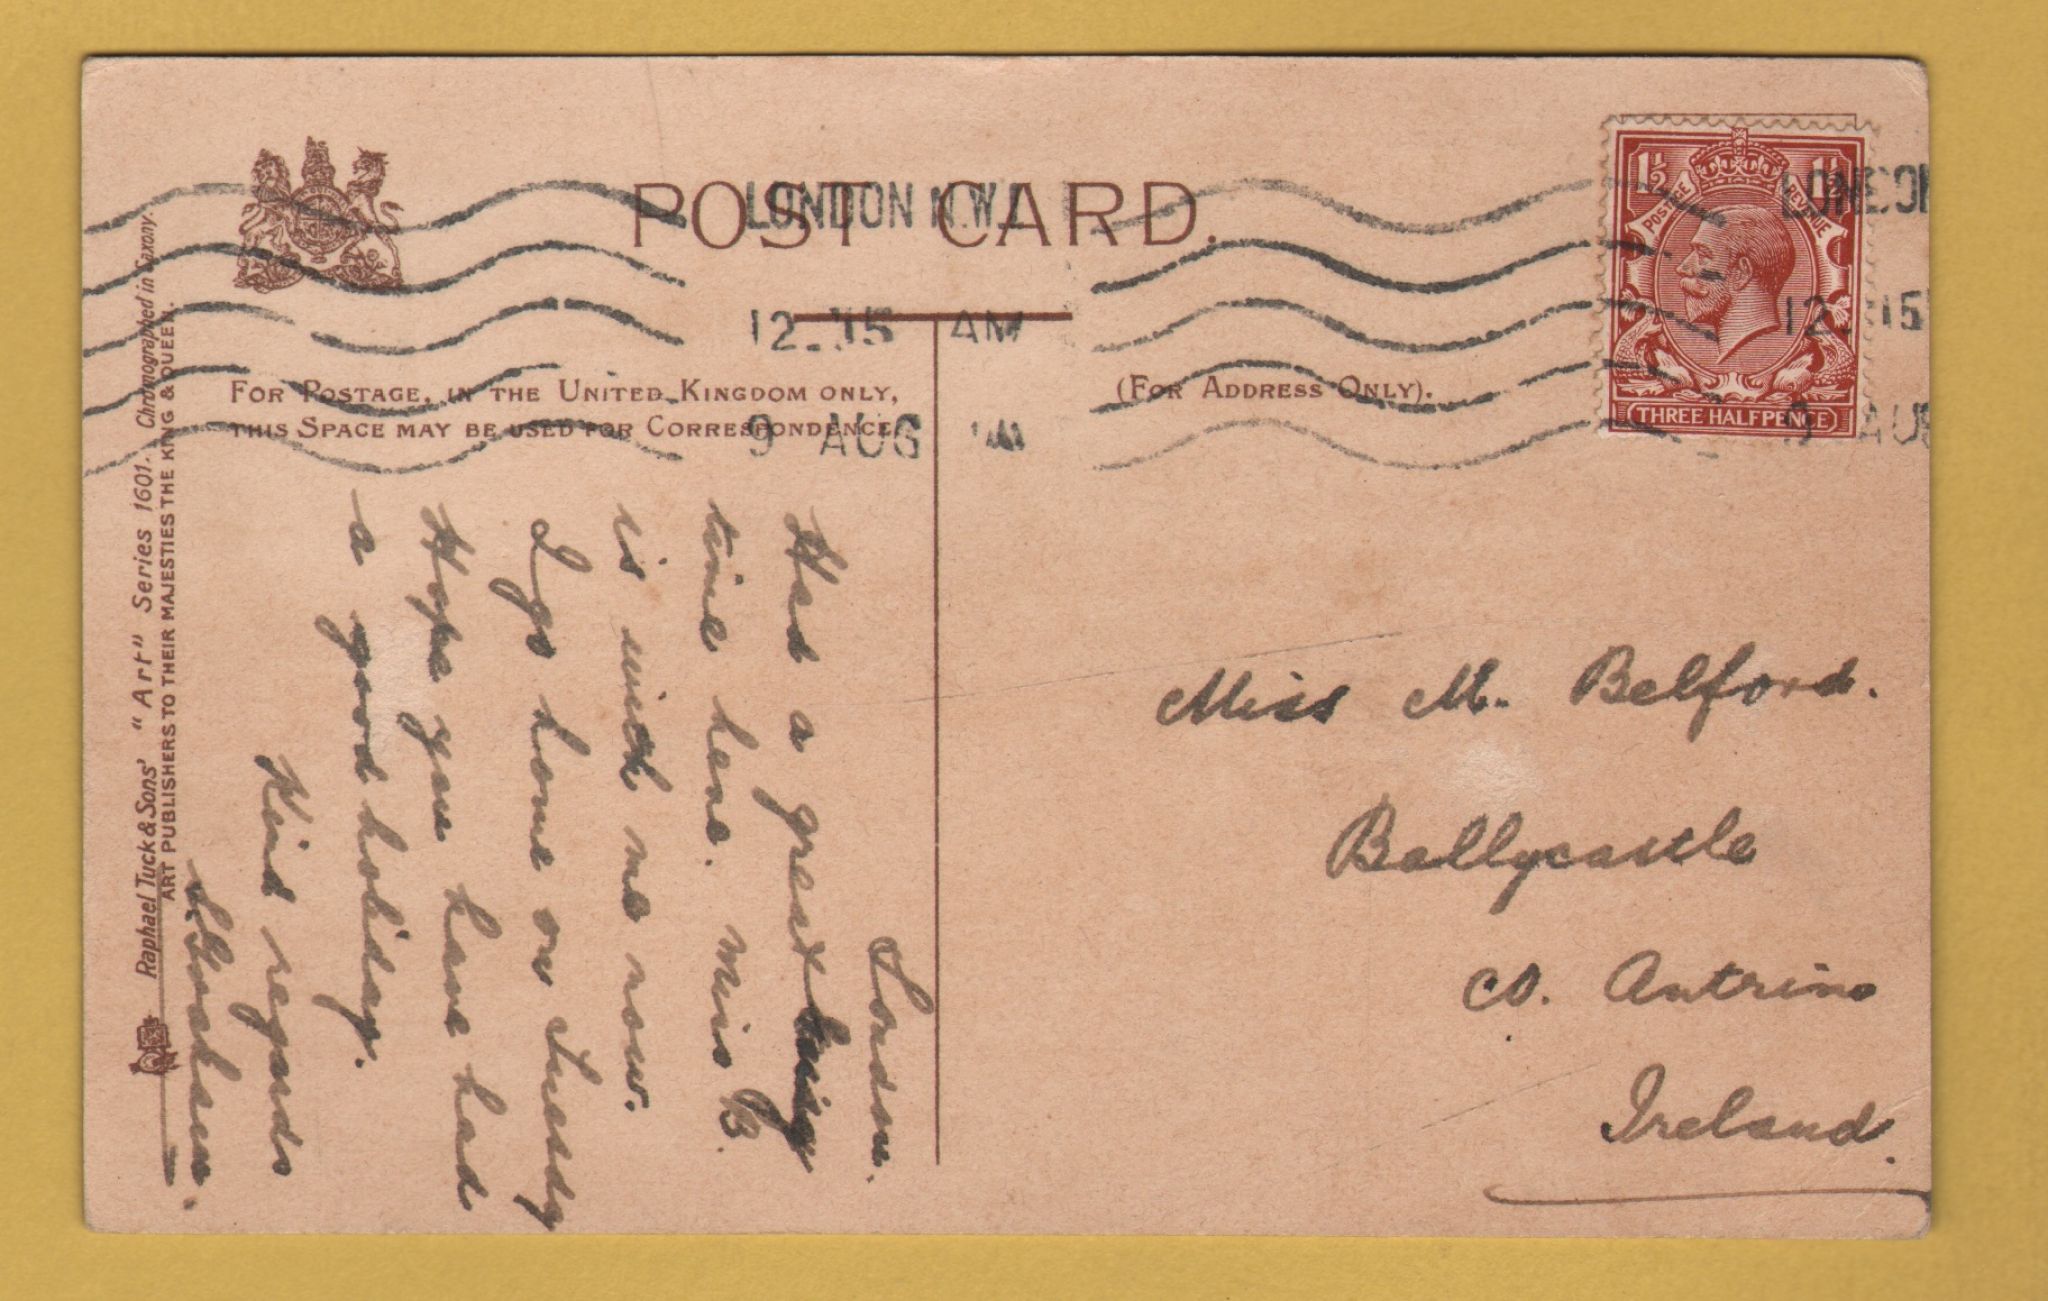 POST CARD.
LONDON N.W.1
12.15 AM
9 AUG
LONDON
12.15
9 AUG
1½ 1½
POSTAGE REVENUE
THREE HALFPENCE
FOR POSTAGE, IN THE UNITED KINGDOM ONLY,
THIS SPACE MAY BE USED FOR CORRESPONDENCE
(FOR ADDRESS ONLY).
Raphael Tuck & Sons' "Art" Series 1601. Chromographed in Saxony.
ART PUBLISHERS TO THEIR MAJESTIES THE KING & QUEEN.
London.
Had a great
time here. Miss B.
is with me now.
I go home on Tuesdy
Hope you have had
a good holiday.
Kind regards
Miss M. Belford.
Ballycastle
Co. Antrim
Ireland.